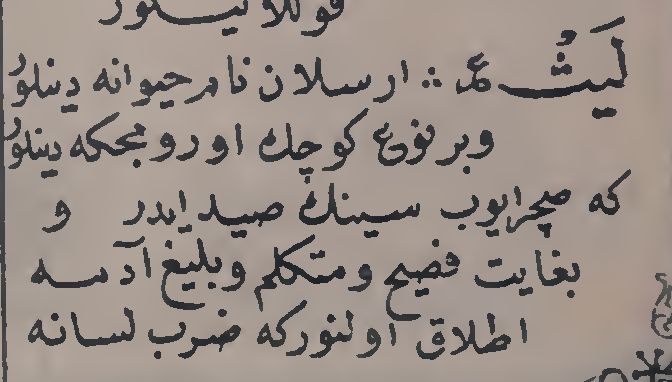 قوللانيلور
لَيْثْ عـ ∴ ارسلان نام حيوانه دينلور
وبر نوع كوچك اورومجكه دينلور
كه صچرايوب سينك صيد ايدر و
بغايت فصيح ومتكلم وبليغ آدمه
اطلاق اولنور كه ضرب لسانه